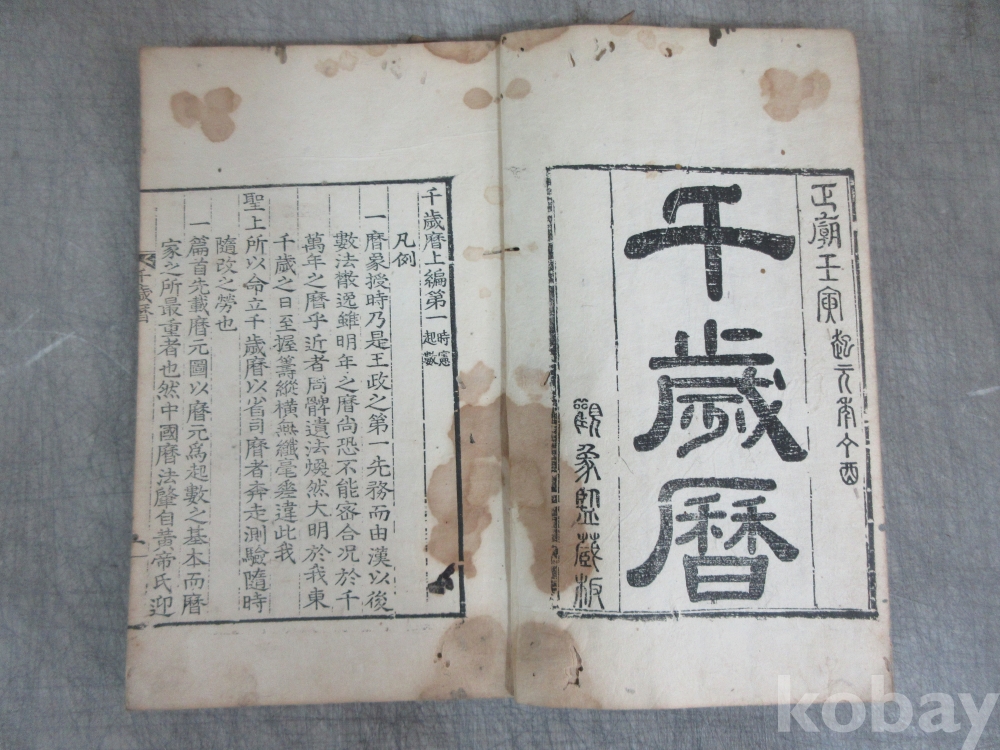 正廟壬寅起元
千歲曆
觀象監藏板
千歲曆上編第一 時憲起數
凡例
一曆象授時乃是王政之第一先務而由漢以後
數法散逸雖明年之曆尚恐不能密合況於千
萬年之曆乎近者周髀遺法煥然大明於我東
千歲之日至握籌縱橫無纖毫差違此我
聖上所以命立千歲曆以省司曆者奔走測驗隨時
隨改之勞也
一篇首先載曆元圖以曆元爲起數之基本而曆
家之所最重者也然中國曆法肇自黃帝氏迎
千歲曆
kobay